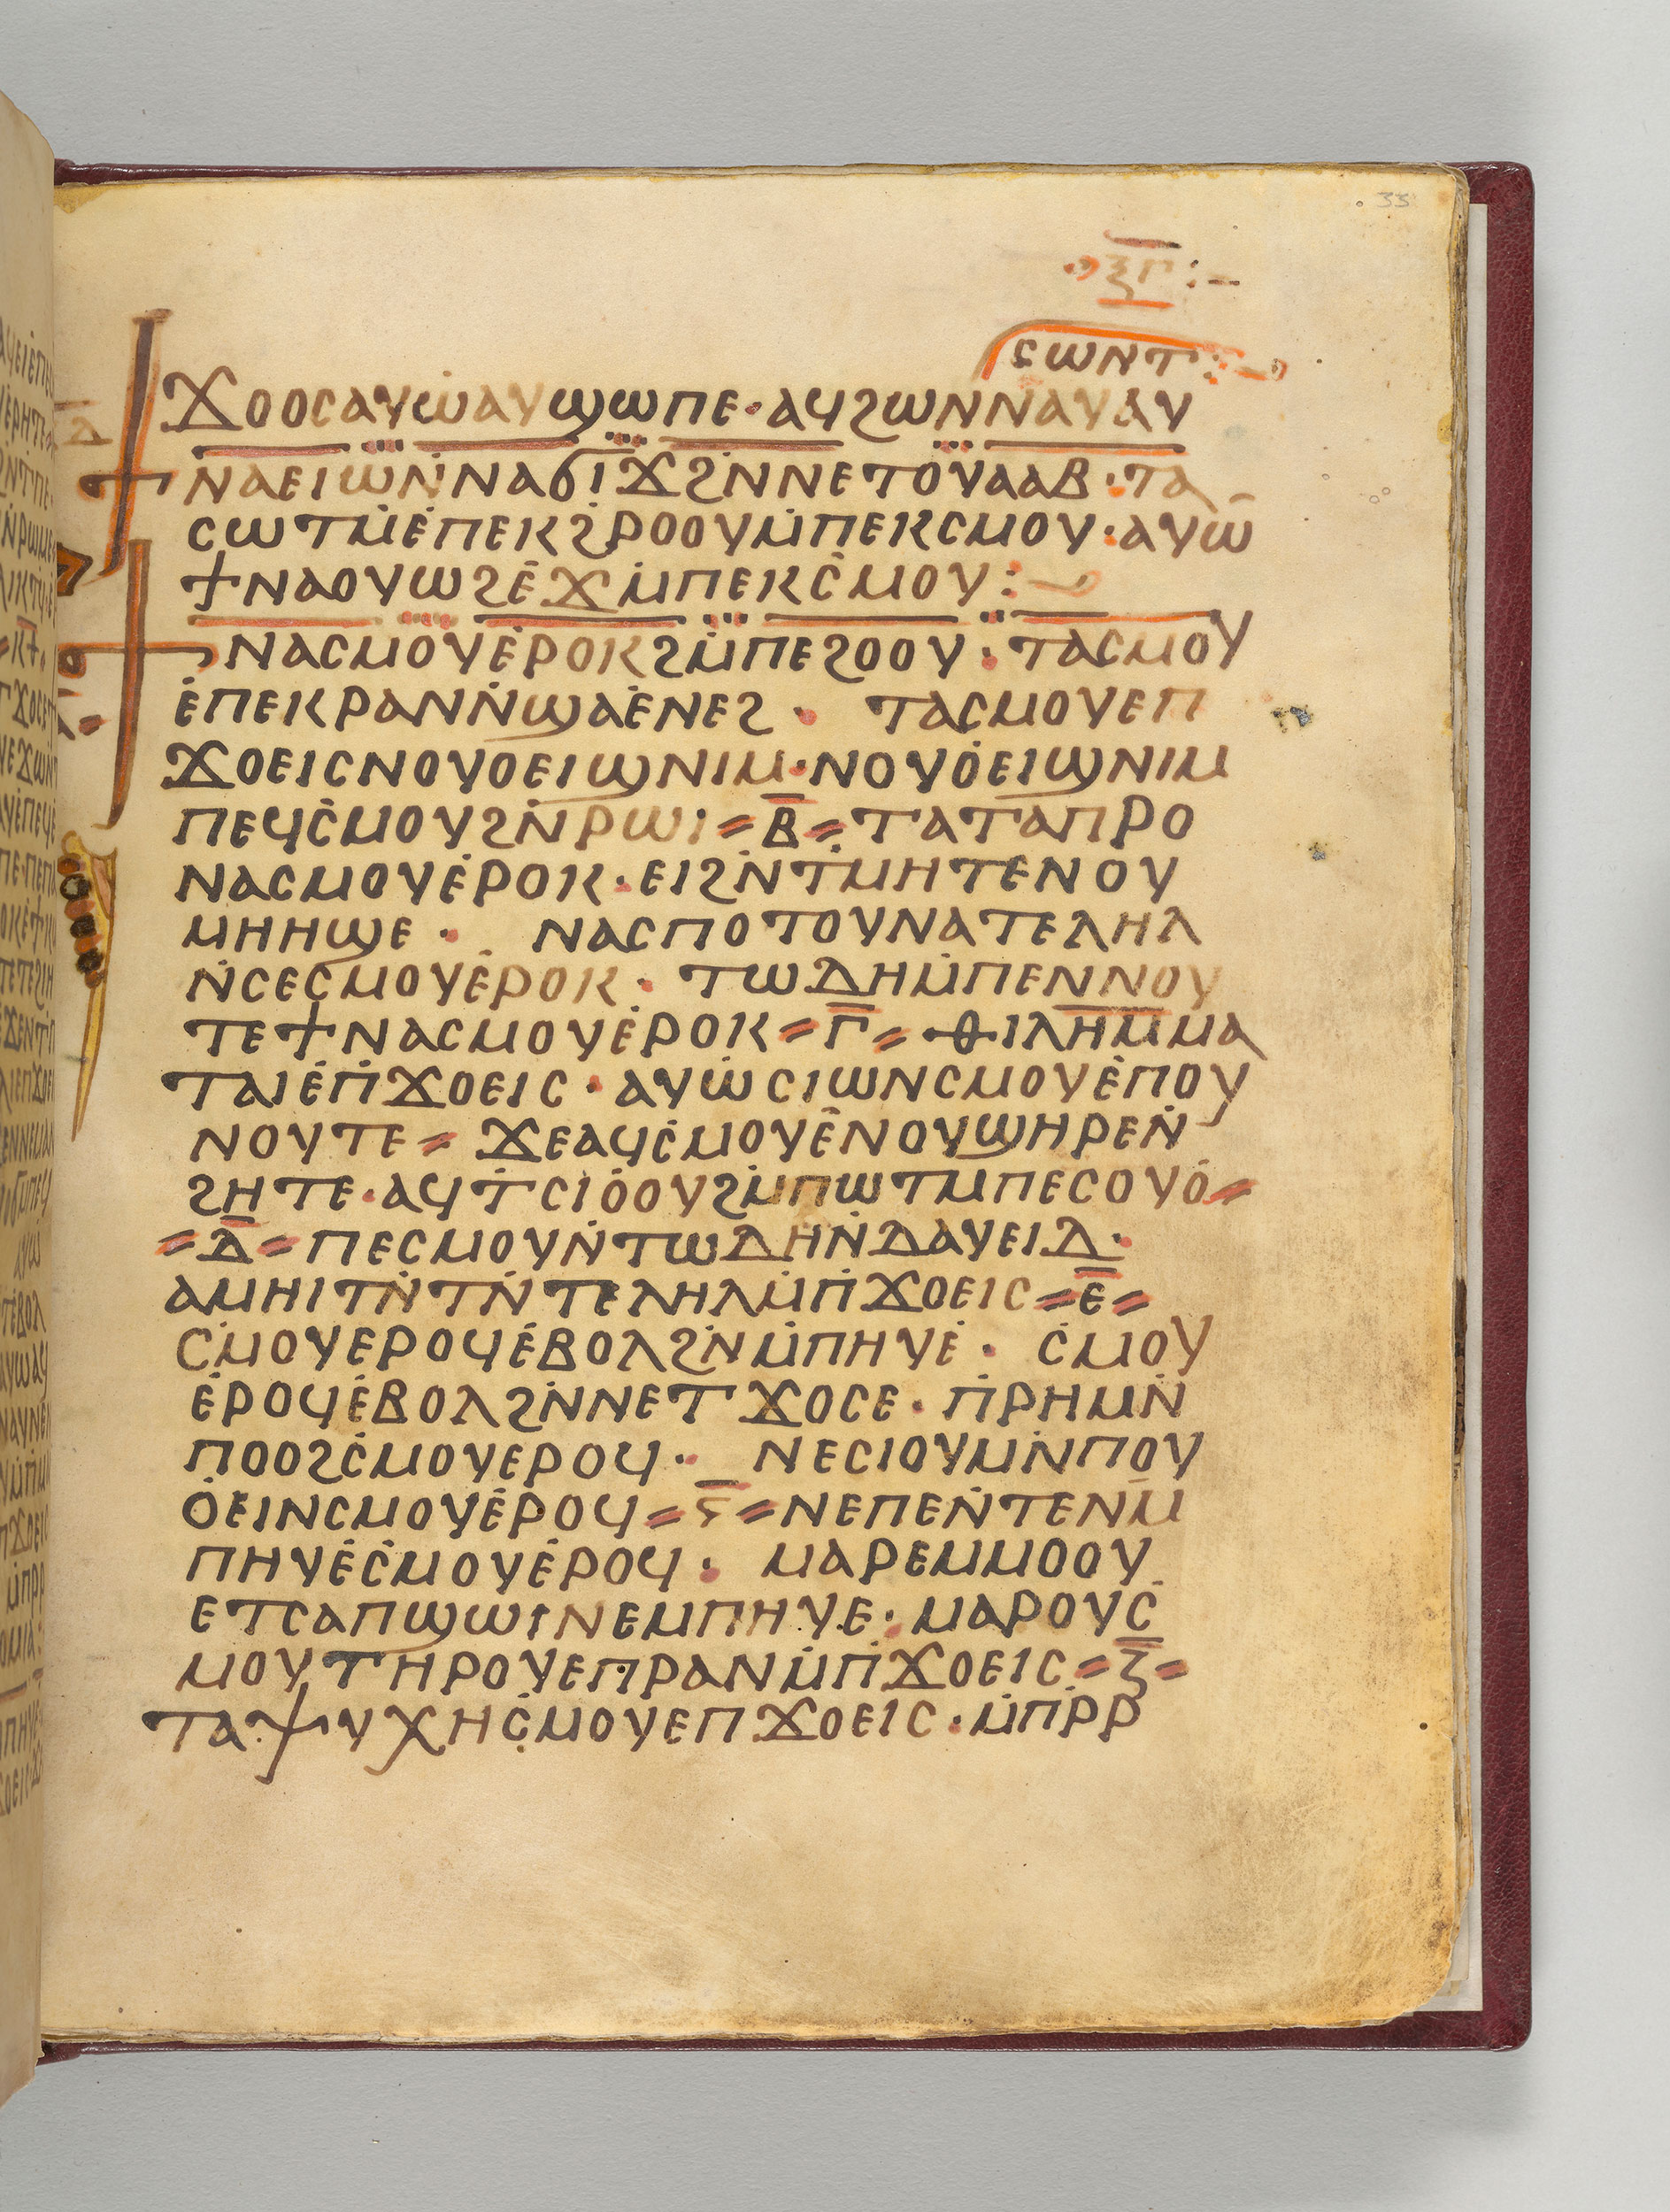 33
ⲝⲅ
ⲥⲱⲛⲧ:
ϫⲟⲟⲥⲁⲩⲱⲁⲩϣⲱⲡⲉ·ⲁϥϩⲱⲛⲛⲁⲩⲁⲩ
ⲇ
ϯⲛⲁⲉⲓⲱⲛ̇ⲛⲁϭⲓϫϩⲛ̇ⲛⲉⲧⲟⲩⲁⲁⲃ·ⲧⲁ
ⲥⲱⲧⲙ̇ⲉ̇ⲡⲉⲕϩⲣⲟⲟⲩⲙ̇ⲡⲉⲕⲥⲙⲟⲩ·ⲁⲩⲱ
ϯⲛⲁⲟⲩⲱϩⲉ̇ϫⲙ̇ⲡⲉⲕⲥ̇ⲙⲟⲩ:
ϯⲛⲁⲥⲙⲟⲩⲉ̇ⲣⲟⲕϩⲙ̇ⲡⲉϩⲟⲟⲩ:ⲧⲁⲥⲙⲟⲩ
ⲉ̇ⲡⲉⲕⲣⲁⲛⲛ̇ϣⲁⲉ̇ⲛⲉϩ· ⲧⲁⲥⲙⲟⲩⲉⲡ
ϫⲟⲉⲓⲥⲛⲟⲩⲟⲉⲓϣⲛⲓⲙ·ⲛⲟⲩⲟ̇ⲉⲓϣⲛⲓⲙ
ⲡⲉϥⲥ̇ⲙⲟⲩϩⲛ̇ⲣⲱⲓ=ⲃ̅=ⲧⲁⲧⲁⲡⲣⲟ
ⲛⲁⲥⲙⲟⲩⲉ̇ⲣⲟⲕ·ⲉⲓϩⲛ̇ⲧ̇ⲙⲏⲧⲉⲛⲟⲩ
ⲙⲏⲏϣⲉ· ⲛⲁⲥⲡⲟⲧⲟⲩⲛⲁⲧⲉⲗⲏⲗ
ⲛ̇ⲥⲉⲥⲙⲟⲩⲉ̇ⲣⲟⲕ· ⲧⲱⲇⲏⲙ̇ⲡⲉⲛⲛⲟⲩ
ⲧⲉϯⲛⲁⲥⲙⲟⲩⲉ̇ⲣⲟⲕ=ⲅ̅=ⲑⲓⲗⲏⲙⲙⲁ
ⲧⲁⲓⲉ̇ⲡ̇ϫⲟⲉⲓⲥ·ⲁⲩⲱ̇ⲥⲓⲱⲛⲥⲙⲟⲩⲉ̇ⲡⲟⲩ
ⲛⲟⲩⲧⲉ=ϫⲉⲁϥⲥ̇ⲙⲟⲩⲉ̇ⲛⲟⲩϣⲏⲣⲉⲛ̇
ϩⲏⲧⲉ·ⲁϥⲧ̇ⲥⲓⲟ̇ⲟⲩϩⲙ̇ⲡⲱⲧⲙⲡⲉⲥⲟⲩⲟ̇=
=ⲇ̅=ⲡⲉⲥⲙⲟⲩⲛ̇ⲧⲱⲇⲏⲛ̇ⲇⲁⲩⲉⲓⲇ·
ⲁⲙⲏⲓⲧⲛ̇ⲧⲛ̇ⲧⲉⲗⲏⲗⲙ̇ⲡ̇ϫⲟⲉⲓⲥ=ⲉ̅=
ⲥ̇ⲙⲟⲩⲉⲣⲟϥⲉ̇ⲃⲟⲗϩⲛ̇ⲙ̇ⲡⲏⲩⲉ̇· ⲥ̇ⲙⲟⲩ
ⲉ̇ⲣⲟϥⲉ̇ⲃⲟⲗϩⲛ̇ⲛⲉⲧϫⲟⲥⲉ·ⲡ̇ⲣⲏⲙⲛ̇
ⲡⲟⲟϩⲥ̇ⲙⲟⲩⲉⲣⲟϥ· ⲛⲉⲥⲓⲟⲩⲙⲛ̇ⲡⲟⲩ
ⲟ̇ⲉⲓⲛⲥⲙⲟⲩⲉ̇ⲣⲟϥ=ⲋ̅=ⲛⲉⲡⲉⲛ̇ⲧⲉⲛⲙ̇
ⲡⲏⲩⲉ̇ⲥ̇ⲙⲟⲩⲉ̇ⲣⲟϥ: ⲙⲁⲣⲉⲙⲙⲟⲟⲩ
ⲉⲧⲥⲁⲡϣⲱⲓⲛⲉⲙⲡⲏⲩⲉ·ⲙⲁⲣⲟⲩⲥ̇
ⲙⲟⲩⲧⲏⲣⲟⲩⲉⲡⲣⲁⲛⲙ̇ⲡ̇ϫⲟⲉⲓⲥ=ⲍ̅=
ⲧⲁⲯⲩⲭⲏⲥ̇ⲙⲟⲩⲉⲡϫⲟⲉⲓⲥ·ⲙ̇ⲡⲣ̇ⲣ